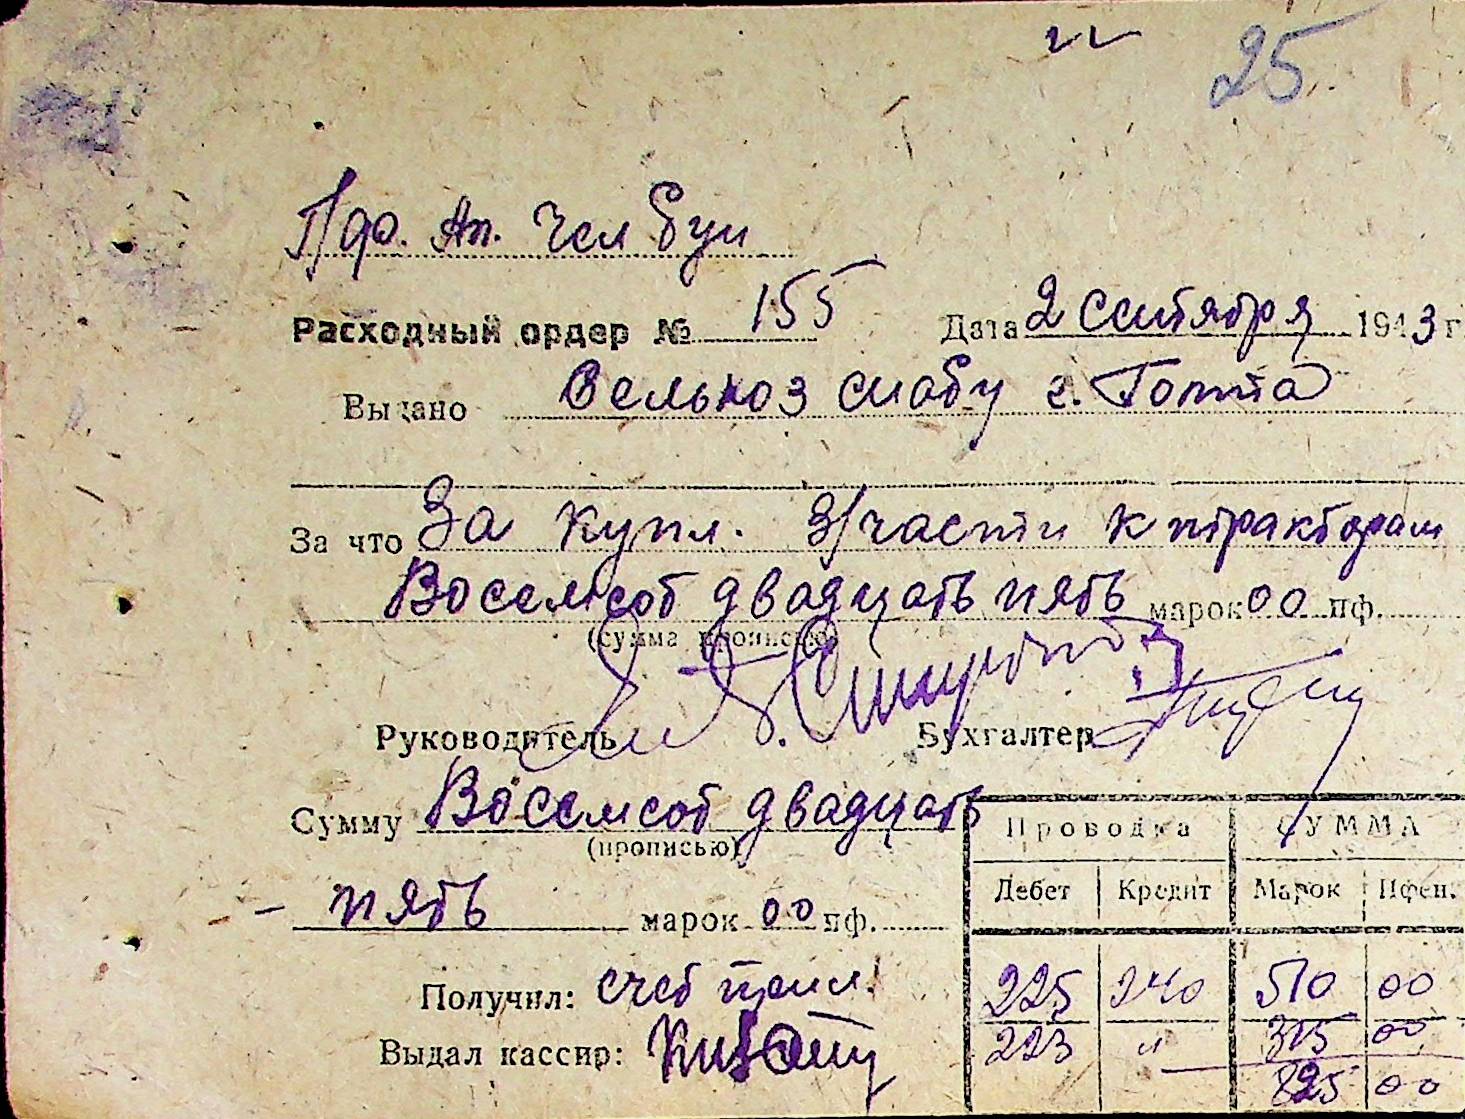 25
Пдо. Ап. Чел Буи
Расходный ордер № 155 Дата 2 Сентября 1943 г.
Выдано Сельхоз снабу г. Готта
За что За купл. З/части к тракторам
Восемсот двадцать пять марок 00 пф.
(сумма прописью)
Руководитель Бухгалтер
Сумму Восемсот двадцать
(прописью)
- пять марок 00 пф.
Получил: счет
Выдал кассир:
Проводка СУММА
Дебет Кредит Марок Пфен.
225 240 510 00
223 " 315 00
825 00